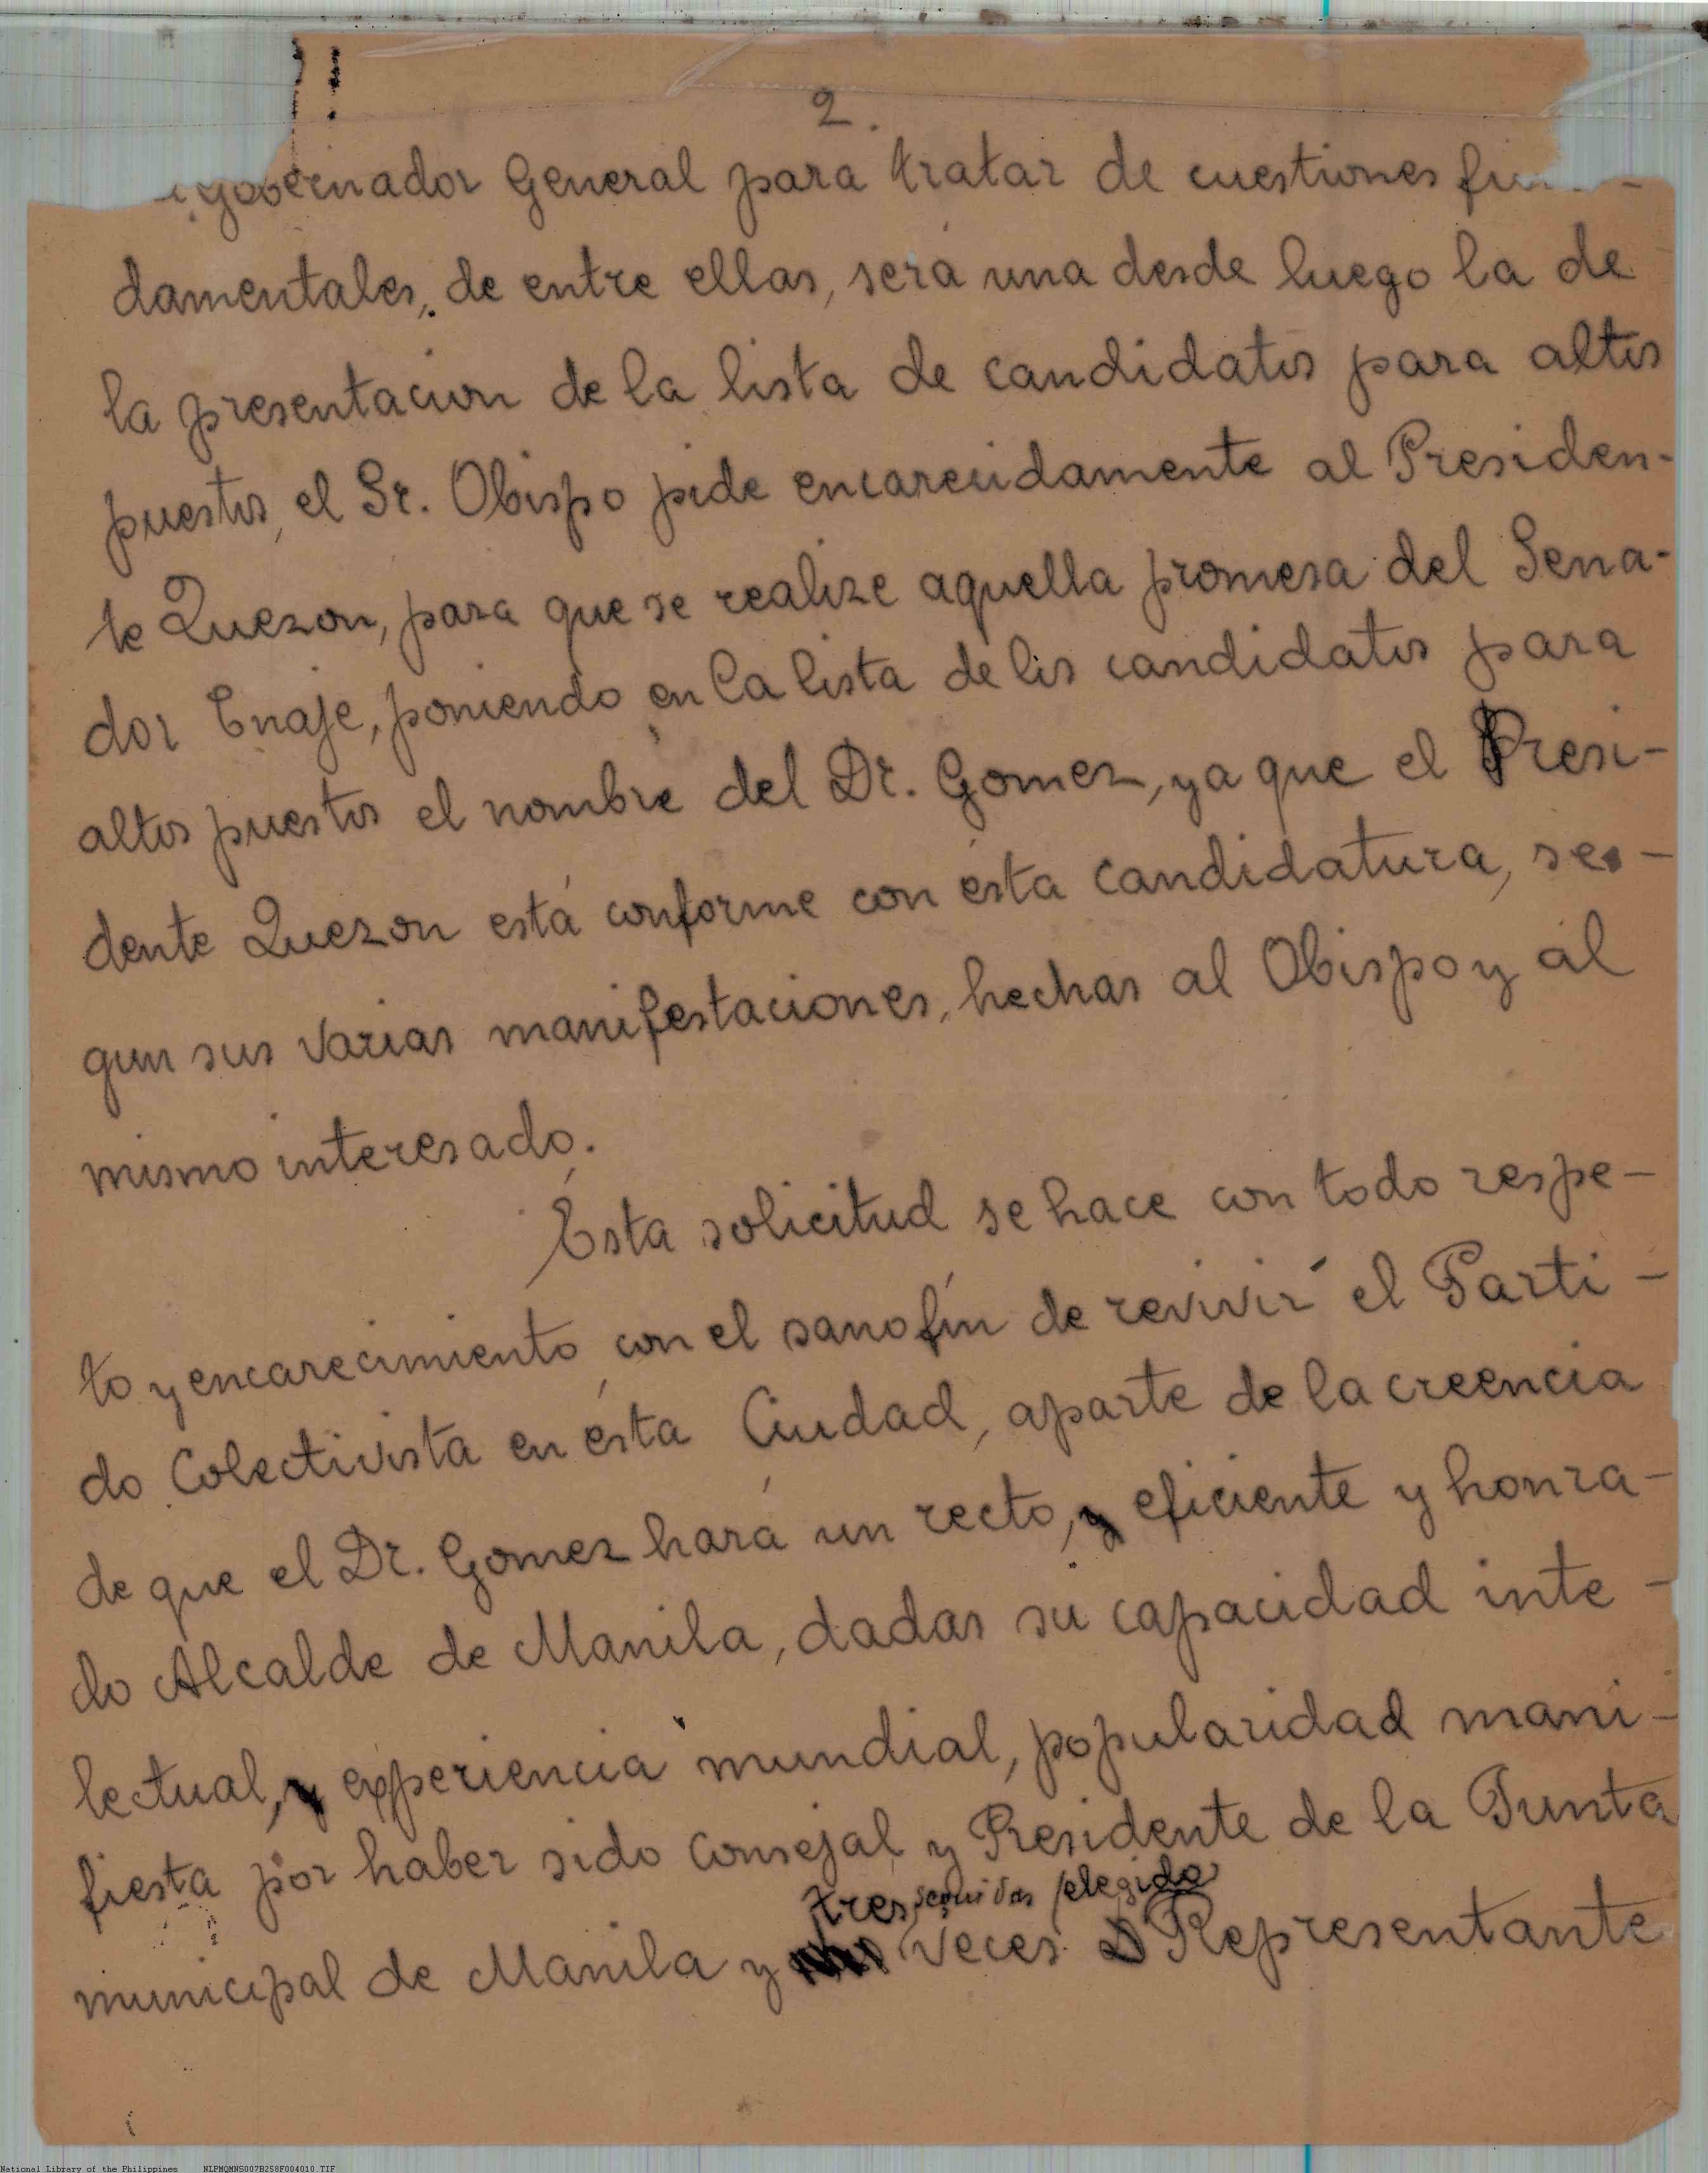 2.
Gobernador General para tratar de cuestiones fun-
damentales, de entre ellas, será una desde luego la de
la presentacion de la lista de candidatos para altos
puestos, el Sr. Obispo pide encarecidamente al Presiden-
te Quezon, para que se realize aquella promesa del Sena-
dor Enaje, poniendo en la lista de los candidatos para
altos puestos el nombre del Dr. Gomez, ya que el Presi-
dente Quezon está conforme con ésta candidatura, se-
gun sus varias manifestaciones, hechas al Obispo y al
mismo interesado.
Ésta solicitud se hace con todo respe-
to y encarecimiento, con el sano fín de revivir el Parti-
do Colectivista en ésta Ciudad, aparte de la creencia
de que el Dr. Gomez hará un recto, y eficiente y honra-
do Alcalde de Manila, dadas su capacidad inte-
lectual, y experiencia mundial, popularidad mani-
fiesta por haber sido Consejal y Presidente de la Junta
tres seguidas elegido
municipal de Manila y veces Representante
National Library of the Philippines NLPMQMNS007B258F004010.TIF